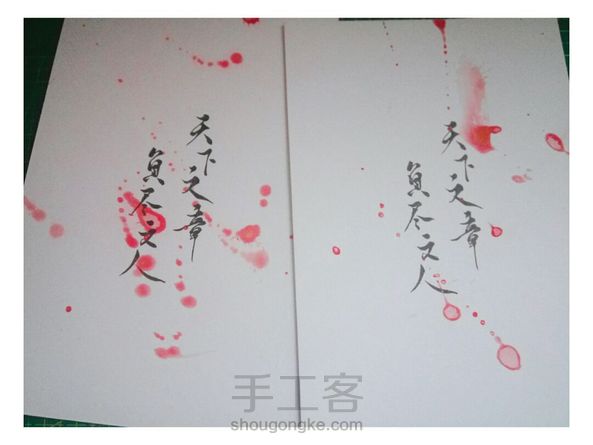 天下文章
負尽文人
天下文章
負尽文人
手工客
shougongke.com